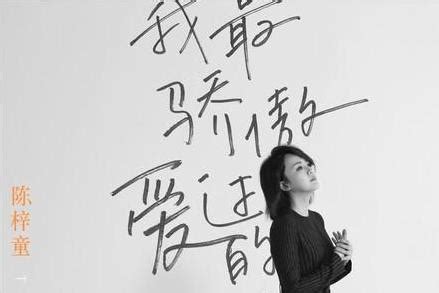 我最
骄傲
爱过的
陈梓童